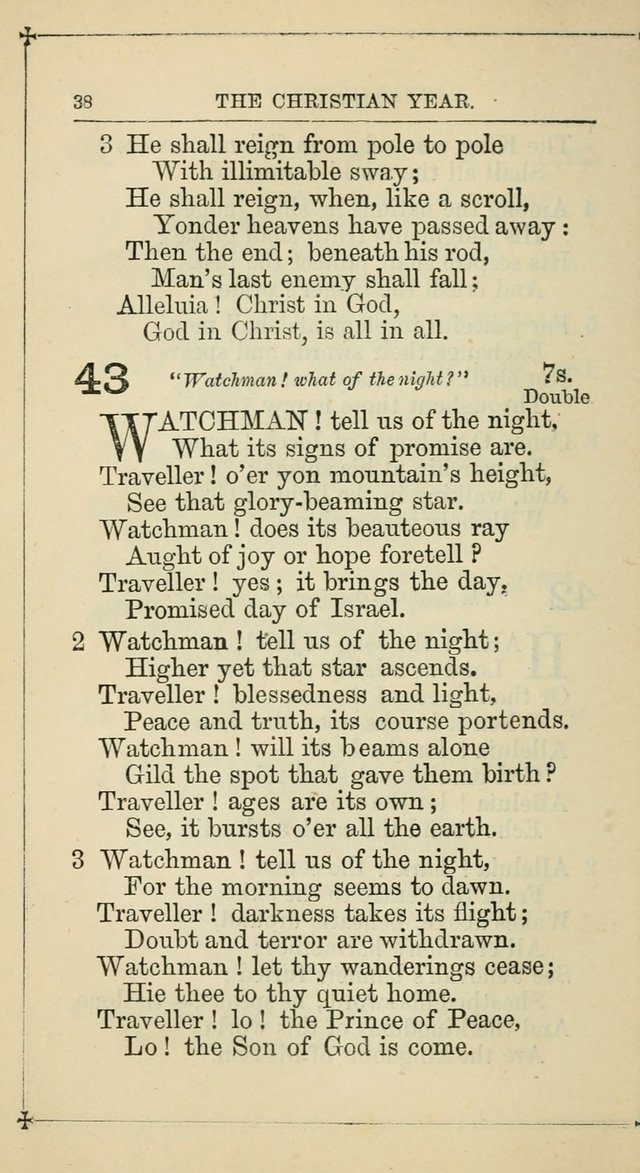 38 THE CHRISTIAN YEAR.
3 He shall reign from pole to pole
With illimitable sway;
He shall reign, when, like a scroll,
Yonder heavens have passed away:
Then the end; beneath his rod,
Man's last enemy shall fall;
Alleluia! Christ in God,
God in Christ, is all in all.
43 "Watchman! what of the night?" 7s.
Double
WATCHMAN! tell us of the night,
What its signs of promise are.
Traveller! o'er yon mountain's height,
See that glory-beaming star.
Watchman! does its beauteous ray
Aught of joy or hope foretell?
Traveller! yes; it brings the day,
Promised day of Israel.
2 Watchman! tell us of the night;
Higher yet that star ascends.
Traveller! blessedness and light,
Peace and truth, its course portends.
Watchman! will its beams alone
Gild the spot that gave them birth?
Traveller! ages are its own;
See, it bursts o'er all the earth.
3 Watchman! tell us of the night,
For the morning seems to dawn.
Traveller! darkness takes its flight;
Doubt and terror are withdrawn.
Watchman! let thy wanderings cease;
Hie thee to thy quiet home.
Traveller! lo! the Prince of Peace,
Lo! the Son of God is come.